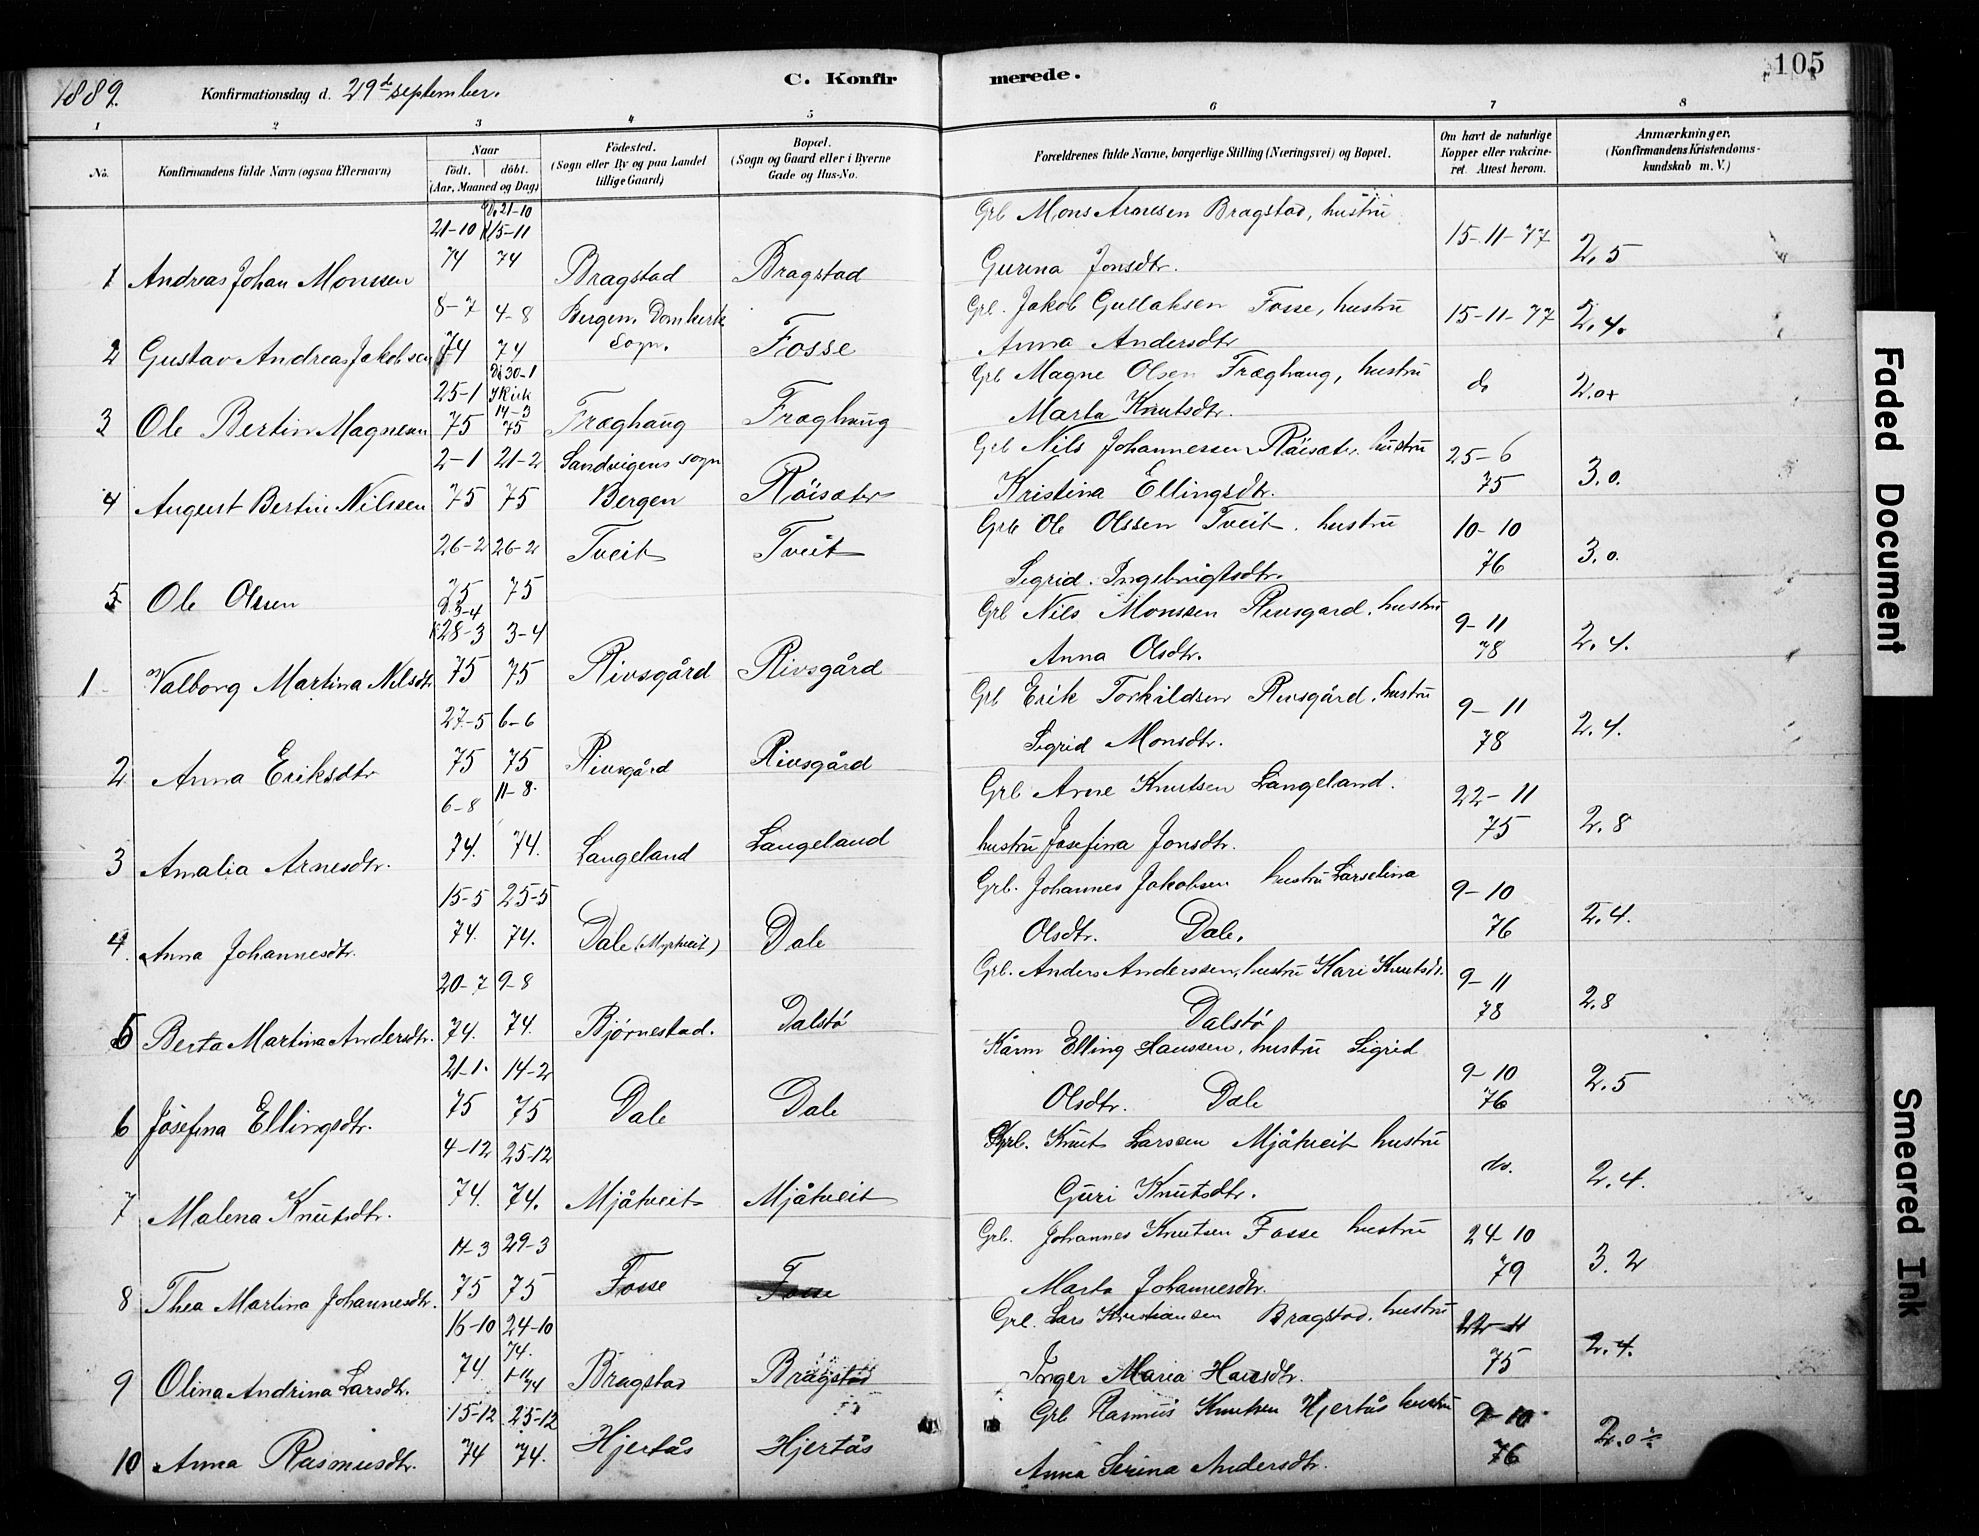 1889. Konfirmationsdag d. 29de september. C. Konfirmerede. 105
1 2 3 4 5 6 7 8
No. Konfirmandens fulde Navn (ogsaa Efternavn) Naar født. døbt. (Aar, Maaned og Dag) Fødested. (Sogn eller By og paa Landet tillige Gaard) Bopæl. (Sogn og Gaard eller i Byerne Gade og Hus-No. Forældrenes fulde Navne, borgerlige Stilling (Næringsvei) og Bopæl. Om havt de naturlige Kopper eller vakcineret. Attest herom. Anmærkninger, (Konfirmandens Kristendomskundskab m. V.)
21-10 21-10 15-11 Grb Mons Arnesen Bragstad, hustru 15-11-77
1 Andreas Johan Monssen 74 74 Bragstad Bragstad Gurina Jonsdtr. 2.5
8-7 4-8 Bergen, Domkirk Grb. Jakob Gullaksen Fosse, hustru 15-11-77
2 Gustav Andreas Jakobsen 74 74 Sogn. Fosse Anna Andersdtr 2.4.
25-1 30-1 Kirk 14-3 Grb Magne Olsen Fræghaug, hustru do
3 Ole Bertin Magnesen 75 75 Fræghaug Fræghaug Marta Knutsdtr. 2.0+
2-1 21-2 Sandvigens sogn Grb Nils Johannessen Röisæter, hustru 25-6
4 August Bertin Nilssen 75 75 Bergen Röisæter Kristina Ellingsdtr. 75 3.0.
26-2 26-2 Tveit Tveit Grb Ole Olssen Tveit. hustru 10-10
5 Ole Olssen 75 75 Sigrid Ingebrigtsdtr. 76 3.0.
3-4 28-3 3-4 Grb Nils Monssen Rivsgard, hustru 9-11
1 Valborg Martina Nilsdtr 75 75 Rivsgård Rivsgård Anna Olsdtr. 78 2.4.
27-5 6-6 Grb Erik Torkildsen Rivsgård, hustru 9-11
2 Anna Eriksdtr 75 75 Rivsgård Rivsgård Sigrid Monsdtr. 78 2.4.
6-8 11-8. Grb Arne Knutsen Langeland. 22-11
3 Amalia Arnesdtr. 74. 74. Langeland Langeland hustru Josefina Jonsdtr. 75 2.8
15-5 25-5 Grb. Johannes Jakobsen hustru Larselina 9-10
4 Anna Johannesdtr. 74. 74. Dale (Myrtveit) Dale Olsdtr. Dale. 76 2.4.
20-7 9-8 Grb. Anders Anderssen, hustru Kari Knutsdtr. 9-11
5 Berta Martina Andersdtr. 74. 74. Bjørnestad. Dalstö Dalstö 78 2.8
21-1. 14-2 Kårm Elling Hanssen, hustru Sigrid 9-10
6 Josefina Ellingsdtr. 75 75 Dale Dale Olsdtr. Dale 76 2.5
4-12 25-12 Grb. Knut Larssen Mjåtveit hustru do.
7 Malena Knutsdtr. 74. 74. Mjåtveit Mjåtveit Guri Knutsdtr. 2.4.
11-3 29-3 Grb. Johannes Knutsen Fosse hustru 24-10
8 Thea Martina Johannesdtr. 75 75 Fosse Fosse Marta Johannesdtr. 79 3.2
16-10 24-10 Grb. Lars Kristiansen Bragstad, hustru 22-11
9 Olina Andrina Larsdtr. 74. 74. Bragstad Bragstad Inger Maria Hansdtr. 75 2.4.
15-12 25-12 Grb Rasmus Knutsen Hjertås hustru 9-10
10 Anna Rasmusdtr. 74 74. Hjertås Hjertås Anna Serina Andersdtr. 76 2.0
Faded Document
Smeared Ink